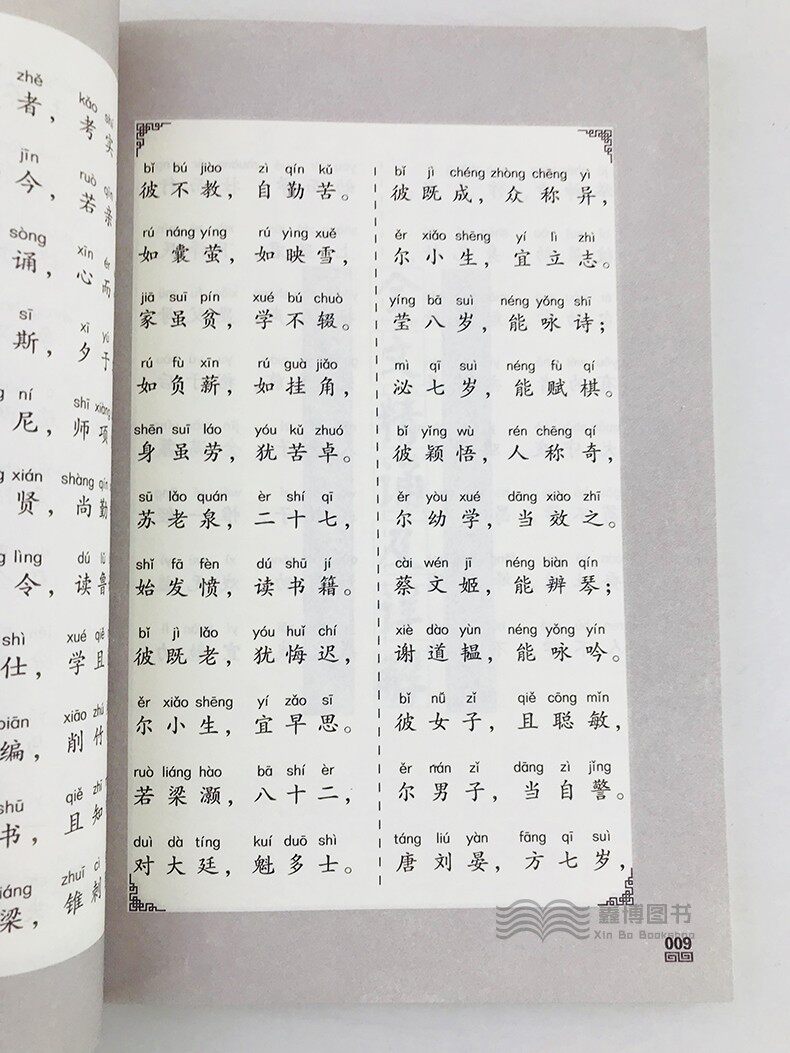 zhě kǎo shí
者，考实
jīn ruò qīn
今，若亲
sòng xīn ér
诵，心而
sī xī yú
斯，夕于
ní shī xiàng
尼，师项
xián shàng qín
贤，尚勤
lìng dú lǔ
令，读鲁
shì xué qiě
仕，学且
biān xiāo zhú
编，削竹
shū qiě zhī
书，且知
liáng zhuī cì
梁，锥刺
bǐ bú jiào zì qín kǔ
彼不教，自勤苦。
rú náng yíng rú yìng xuě
如囊萤，如映雪，
jiā suī pín xué bú chuò
家虽贫，学不辍。
rú fù xīn rú guà jiǎo
如负薪，如挂角，
shēn suī láo yóu kǔ zhuó
身虽劳，犹苦卓。
sū lǎo quán èr shí qī
苏老泉，二十七，
shǐ fā fèn dú shū jí
始发愤，读书籍。
bǐ jì lǎo yóu huǐ chí
彼既老，犹悔迟，
ěr xiǎo shēng yí zǎo sī
尔小生，宜早思。
ruò liáng hào bā shí èr
若梁灏，八十二，
duì dà tíng kuí duō shì
对大廷，魁多士。
bǐ jì chéng zhòng chēng yì
彼既成，众称异，
ěr xiǎo shēng yí lì zhì
尔小生，宜立志。
yíng bā suì néng yǒng shī
莹八岁，能咏诗；
mì qī suì néng fù qí
泌七岁，能赋棋。
bǐ yǐng wù rén chēng qí
彼颖悟，人称奇，
ěr yòu xué dāng xiào zhī
尔幼学，当效之。
cài wén jī néng biàn qín
蔡文姬，能辨琴；
xiè dào yùn néng yǒng yín
谢道韫，能咏吟。
bǐ nǚ zǐ qiě cōng mǐn
彼女子，且聪敏，
ěr nán zǐ dāng zì jǐng
尔男子，当自警。
táng liú yàn fāng qī suì
唐刘晏，方七岁，
鑫博图书
Xin Bo Bookshop
009